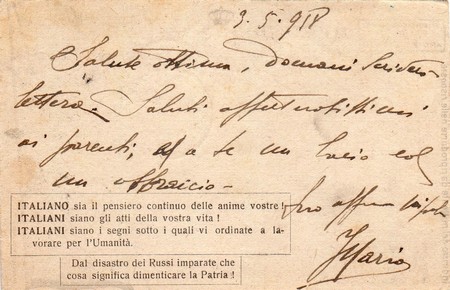 3.5.918
Salute ottima, domani scriverò
lettera. Saluti affettuosissimi
ai parenti, ed a te un bacio ed
un abbraccio -
tuo affmo
Mario
ITALIANO sia il pensiero continuo delle anime vostre!
ITALIANI siano gli atti della vostra vita!
ITALIANI siano i segni sotto i quali vi ordinate a la-
vorare per l'Umanità.
Dal disastro dei Russi imparate che
cosa significa dimenticare la Patria!